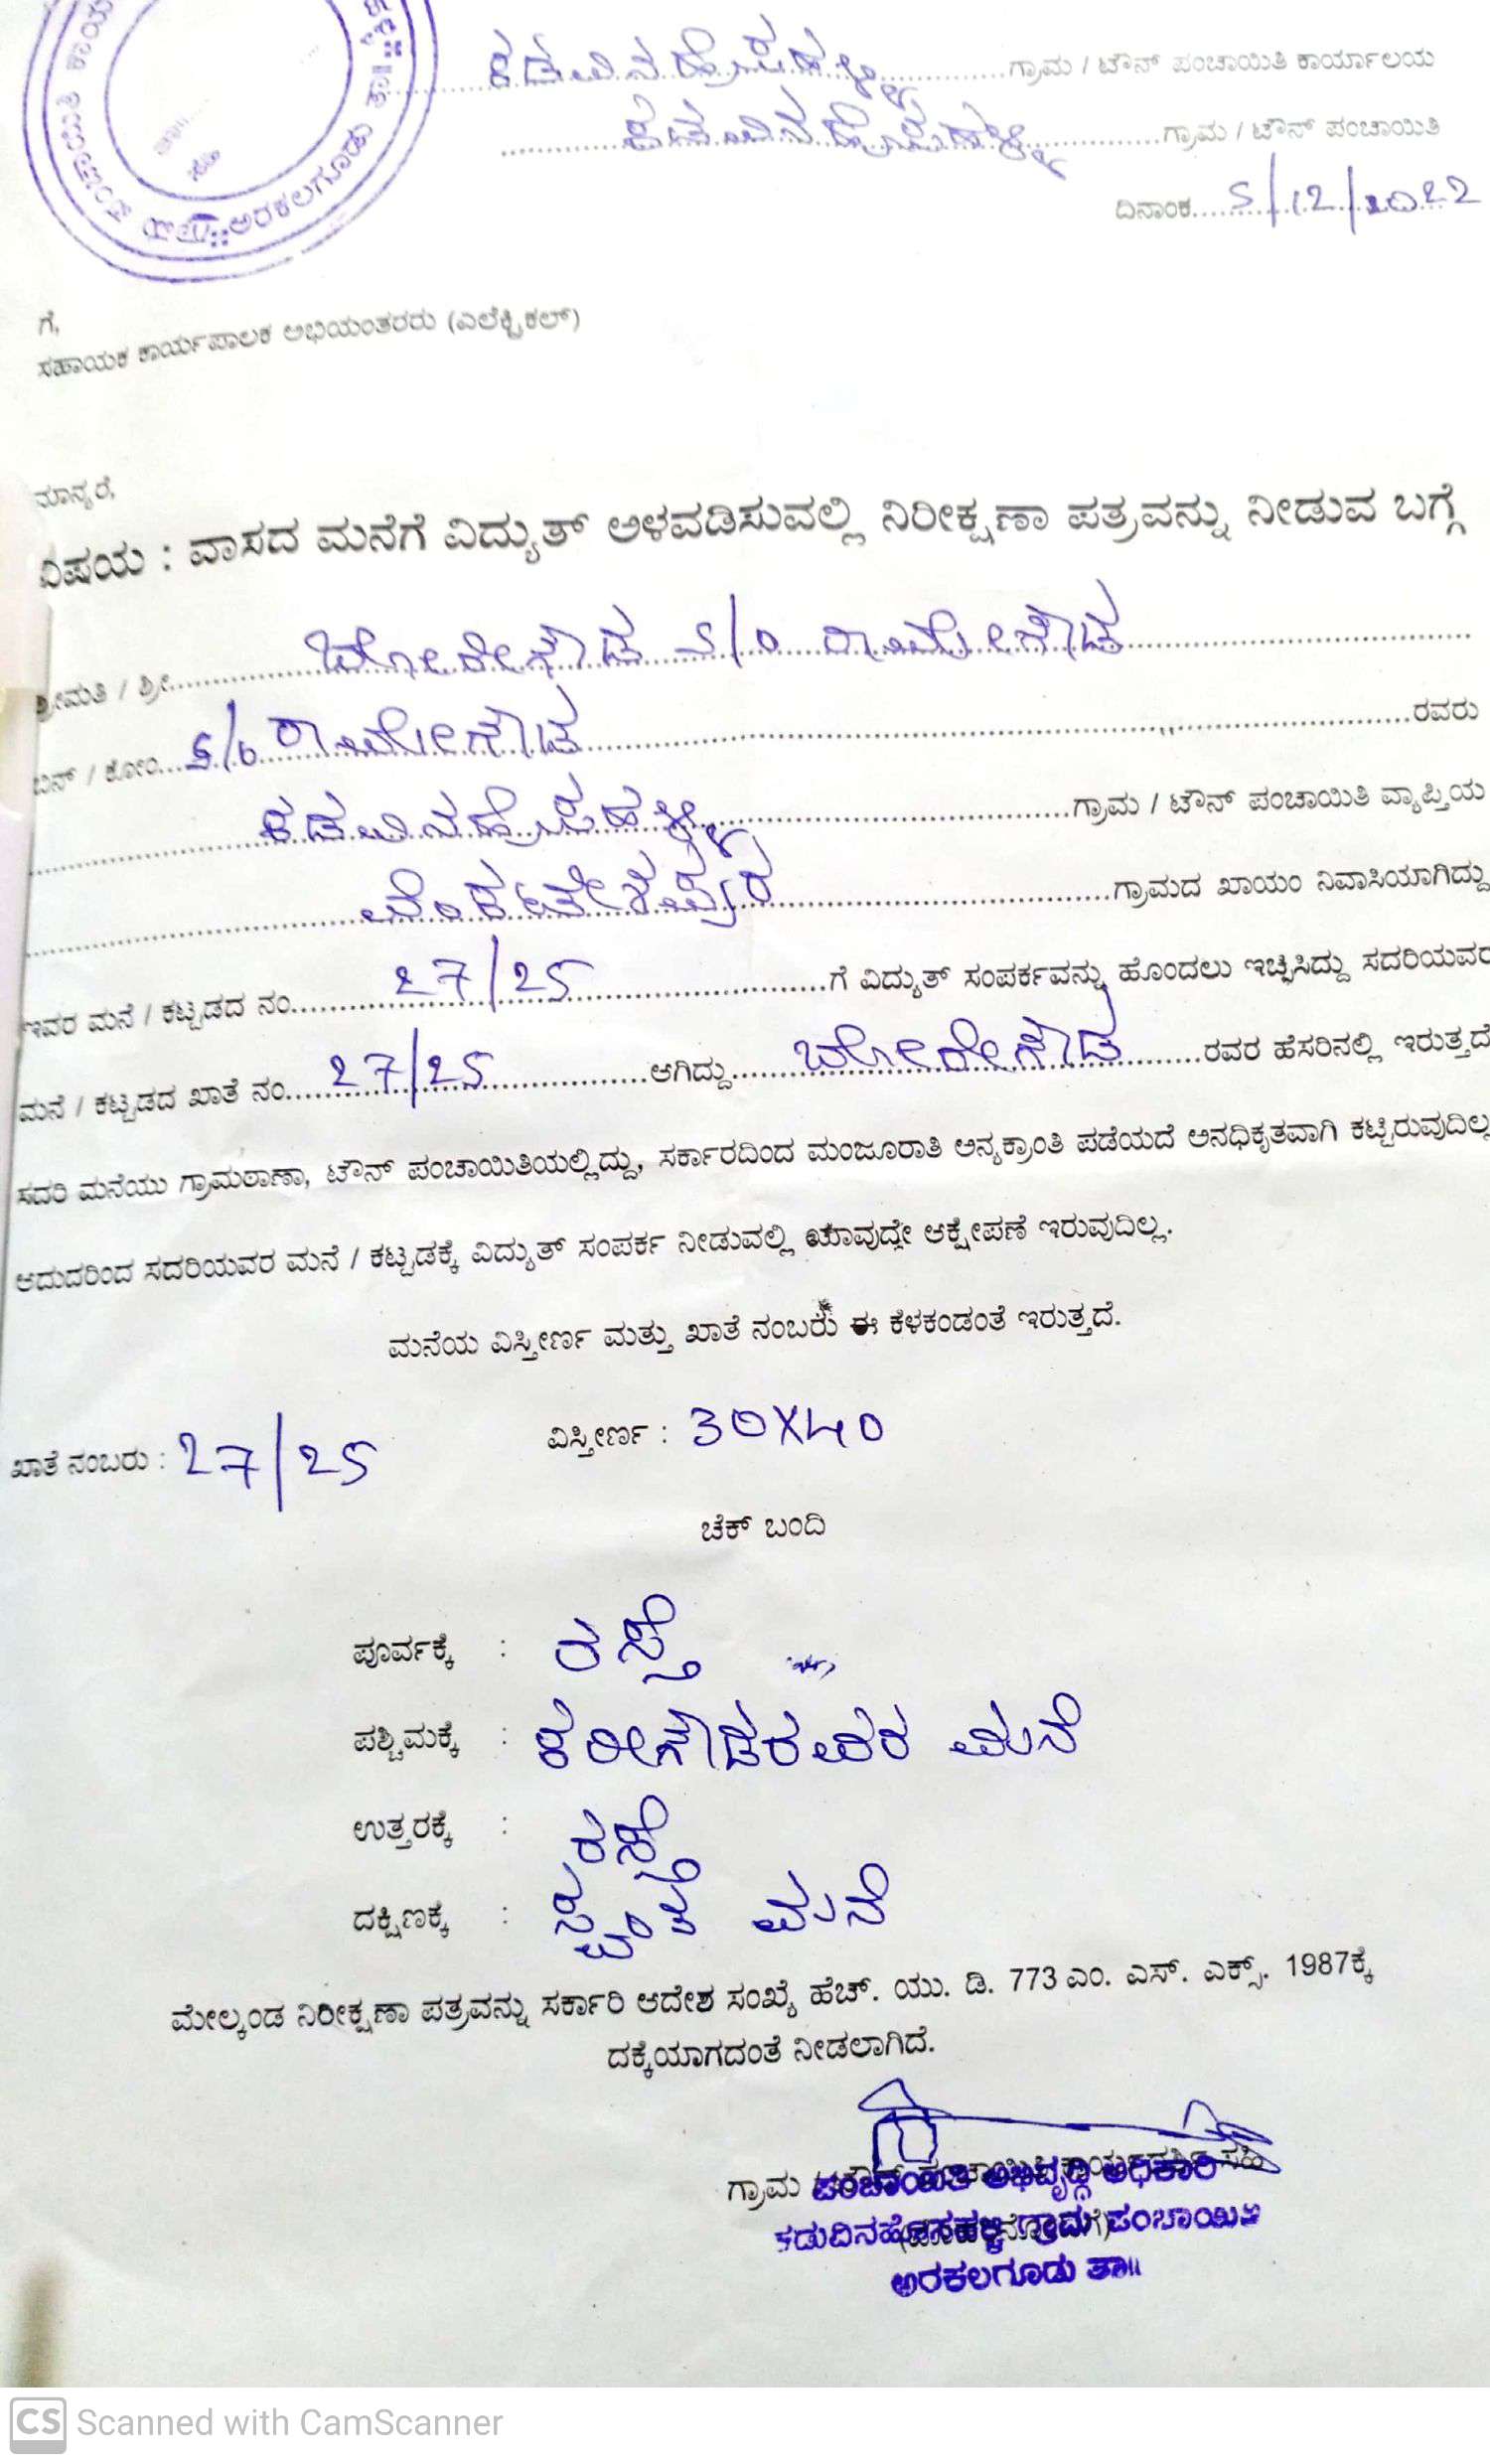 ಕಡುವಿನಹೊಸಹಳ್ಳಿ ಗ್ರಾಮ / ಟೌನ್ ಪಂಚಾಯಿತಿ ಕಾರ್ಯಾಲಯ
ಕಡುವಿನಹೊಸಹಳ್ಳಿ ಗ್ರಾಮ / ಟೌನ್ ಪಂಚಾಯಿತಿ
ದಿನಾಂಕ 5/12/2022
ಅರಕಲಗೂಡು ತಾ॥
ಗೆ,
ಸಹಾಯಕ ಕಾರ್ಯಪಾಲಕ ಅಭಿಯಂತರರು (ಎಲೆಕ್ಟ್ರಿಕಲ್)
ಮಾನ್ಯರೆ,
ವಿಷಯ : ವಾಸದ ಮನೆಗೆ ವಿದ್ಯುತ್ ಅಳವಡಿಸುವಲ್ಲಿ ನಿರೀಕ್ಷಣಾ ಪತ್ರವನ್ನು ನೀಡುವ ಬಗ್ಗೆ
ಶ್ರೀಮತಿ / ಶ್ರೀ ಬೋರೇಗೌಡ S/o ರಾಮೇಗೌಡ
ಬಿನ್ / ಕೋಂ S/o ರಾಮೇಗೌಡ ರವರು
ಕಡುವಿನಹೊಸಹಳ್ಳಿ ಗ್ರಾಮ / ಟೌನ್ ಪಂಚಾಯಿತಿ ವ್ಯಾಪ್ತಿಯ
ವೆಂಕಟೇಶಪುರ ಗ್ರಾಮದ ಖಾಯಂ ನಿವಾಸಿಯಾಗಿದ್ದು
ಇವರ ಮನೆ / ಕಟ್ಟಡದ ನಂ 27/25 ಗೆ ವಿದ್ಯುತ್ ಸಂಪರ್ಕವನ್ನು ಹೊಂದಲು ಇಚ್ಛಿಸಿದ್ದು ಸದರಿಯವರ
ಮನೆ / ಕಟ್ಟಡದ ಖಾತೆ ನಂ 27/25 ಆಗಿದ್ದು ಬೋರೇಗೌಡ ರವರ ಹೆಸರಿನಲ್ಲಿ ಇರುತ್ತದೆ
ಸದರಿ ಮನೆಯು ಗ್ರಾಮಠಾಣಾ, ಟೌನ್ ಪಂಚಾಯಿತಿಯಲ್ಲಿದ್ದು, ಸರ್ಕಾರದಿಂದ ಮಂಜೂರಾತಿ ಅನ್ಯಕ್ರಾಂತಿ ಪಡೆಯದೆ ಅನಧಿಕೃತವಾಗಿ ಕಟ್ಟಿರುವುದಿಲ್ಲ
ಆದುದರಿಂದ ಸದರಿಯವರ ಮನೆ / ಕಟ್ಟಡಕ್ಕೆ ವಿದ್ಯುತ್ ಸಂಪರ್ಕ ನೀಡುವಲ್ಲಿ ಯಾವುದೇ ಆಕ್ಷೇಪಣೆ ಇರುವುದಿಲ್ಲ.
ಮನೆಯ ವಿಸ್ತೀರ್ಣ ಮತ್ತು ಖಾತೆ ನಂಬರು ಈ ಕೆಳಕಂಡಂತೆ ಇರುತ್ತದೆ.
ಖಾತೆ ನಂಬರು : 27/25 ವಿಸ್ತೀರ್ಣ : 30X40
ಚೆಕ್ ಬಂದಿ
ಪೂರ್ವಕ್ಕೆ : ರಸ್ತೆ
ಪಶ್ಚಿಮಕ್ಕೆ : ಕರೀಗೌಡರವರ ಮನೆ
ಉತ್ತರಕ್ಕೆ : ರಸ್ತೆ
ದಕ್ಷಿಣಕ್ಕೆ : ಸ್ವಂತ ಮನೆ
ಮೇಲ್ಕಂಡ ನಿರೀಕ್ಷಣಾ ಪತ್ರವನ್ನು ಸರ್ಕಾರಿ ಆದೇಶ ಸಂಖ್ಯೆ ಹೆಚ್. ಯು. ಡಿ. 773 ಎಂ. ಎಸ್. ಎಕ್ಸ್. 1987ಕ್ಕೆ
ದಕ್ಕೆಯಾಗದಂತೆ ನೀಡಲಾಗಿದೆ.
ಗ್ರಾಮ / ಟೌನ್ ಪಂಚಾಯಿತಿ ಕಾರ್ಯದರ್ಶಿ ಸಹಿ
ಪಂಚಾಯಿತಿ ಅಭಿವೃದ್ಧಿ ಅಧಿಕಾರಿ
ಕಡುವಿನಹೊಸಹಳ್ಳಿ ಗ್ರಾಮ ಪಂಚಾಯಿತಿ
ಅರಕಲಗೂಡು ತಾ॥
CS Scanned with CamScanner